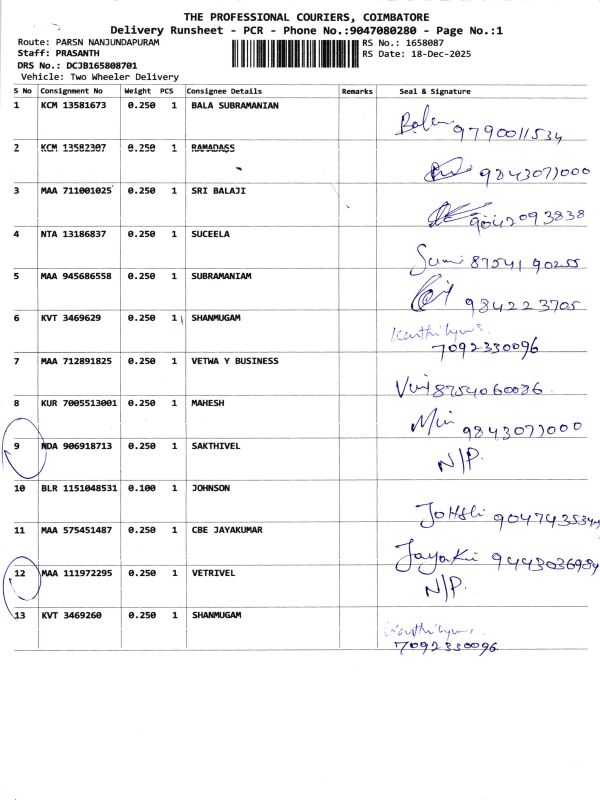 THE PROFESSIONAL COURIERS, COIMBATORE
Delivery Runsheet - PCR - Phone No.:9047080280 - Page No.:1
Route: PARSN NANJUNDAPURAM RS No.: 1658087
Staff: PRASANTH RS Date: 18-Dec-2025
DRS No.: DCJB165808701
Vehicle: Two Wheeler Delivery
S No Consignment No Weight PCS Consignee Details Remarks Seal & Signature
1 KCM 13581673 0.250 1 BALA SUBRAMANIAN
Bala 9790011534
2 KCM 13582307 0.250 1 RAMADASS
9843077000
3 MAA 711001025 0.250 1 SRI BALAJI
9042093838
4 NTA 13186837 0.250 1 SUCEELA
Sumi 87541 90255
5 MAA 945686558 0.250 1 SUBRAMANIAM
984223705
6 KVT 3469629 0.250 1 SHANMUGAM
7092330096
7 MAA 712891825 0.250 1 VETWA Y BUSINESS
8754060086
8 KUR 7005513001 0.250 1 MAHESH
9843077000
9 NDA 906918713 0.250 1 SAKTHIVEL
N/P.
10 BLR 1151048531 0.100 1 JOHNSON
11 MAA 575451487 0.250 1 CBE JAYAKUMAR
9443036984
12 MAA 111972295 0.250 1 VETRIVEL
N/P.
13 KVT 3469260 0.250 1 SHANMUGAM
7092330096